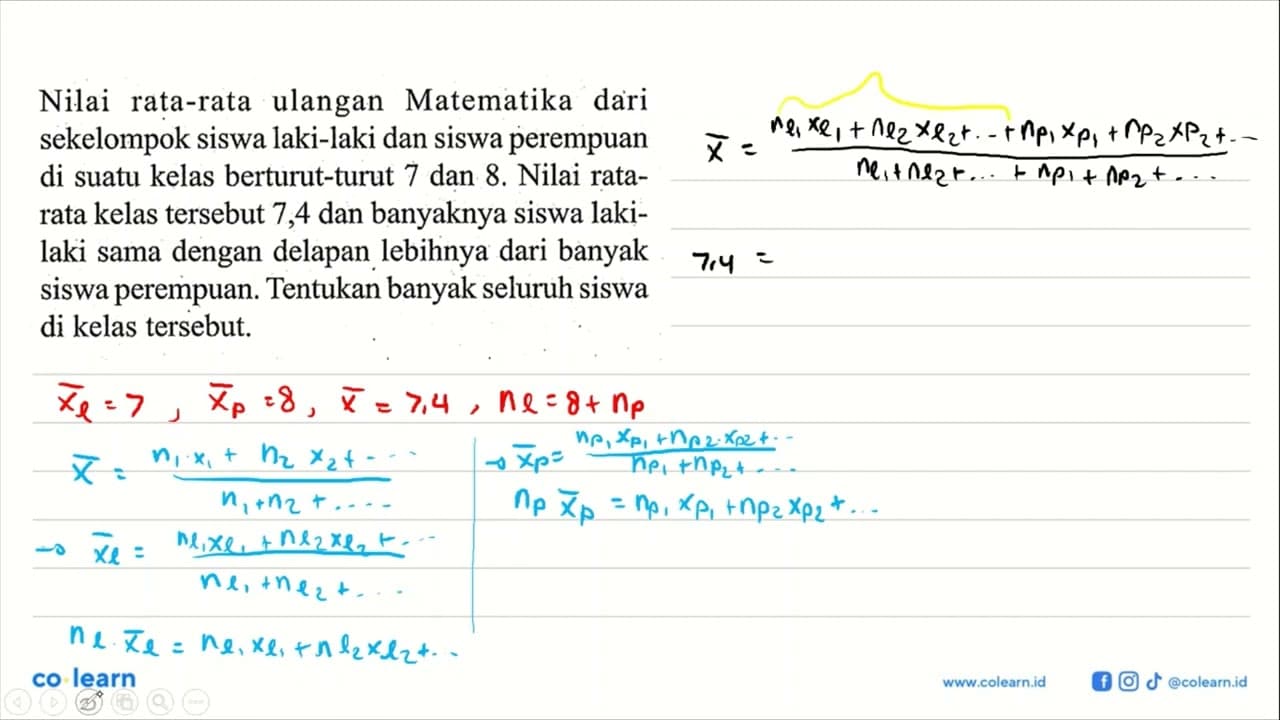 Nilai rata-rata ulangan Matematika dari
sekelompok siswa laki-laki dan siswa perempuan
di suatu kelas berturut-turut 7 dan 8. Nilai rata-
rata kelas tersebut 7,4 dan banyaknya siswa laki-
laki sama dengan delapan lebihnya dari banyak
siswa perempuan. Tentukan banyak seluruh siswa
di kelas tersebut.
x̄ = (nℓ₁xℓ₁ + nℓ₂xℓ₂+... + np₁xp₁ + np₂xp₂+...)/(nℓ₁+nℓ₂+... + np₁ + np₂ + ...)
7,4 =
x̄ℓ = 7 , x̄p = 8 , x̄ = 7,4 , nℓ = 8 + np
x̄ = (n₁·x₁ + n₂ x₂ + ....)/(n₁+n₂ + ....)
→ x̄ℓ = (nℓ₁xℓ₁ + nℓ₂xℓ₂ + ...)/(nℓ₁ + nℓ₂ + ...)
nℓ.x̄ℓ = nℓ₁xℓ₁ + nℓ₂xℓ₂+...
→ x̄p = (np₁xp₁+np₂.xp₂+...)/(np₁ + np₂+ ....)
np x̄p = np₁xp₁ + np₂xp₂ + ...
co learn
www.colearn.id
@colearn.id